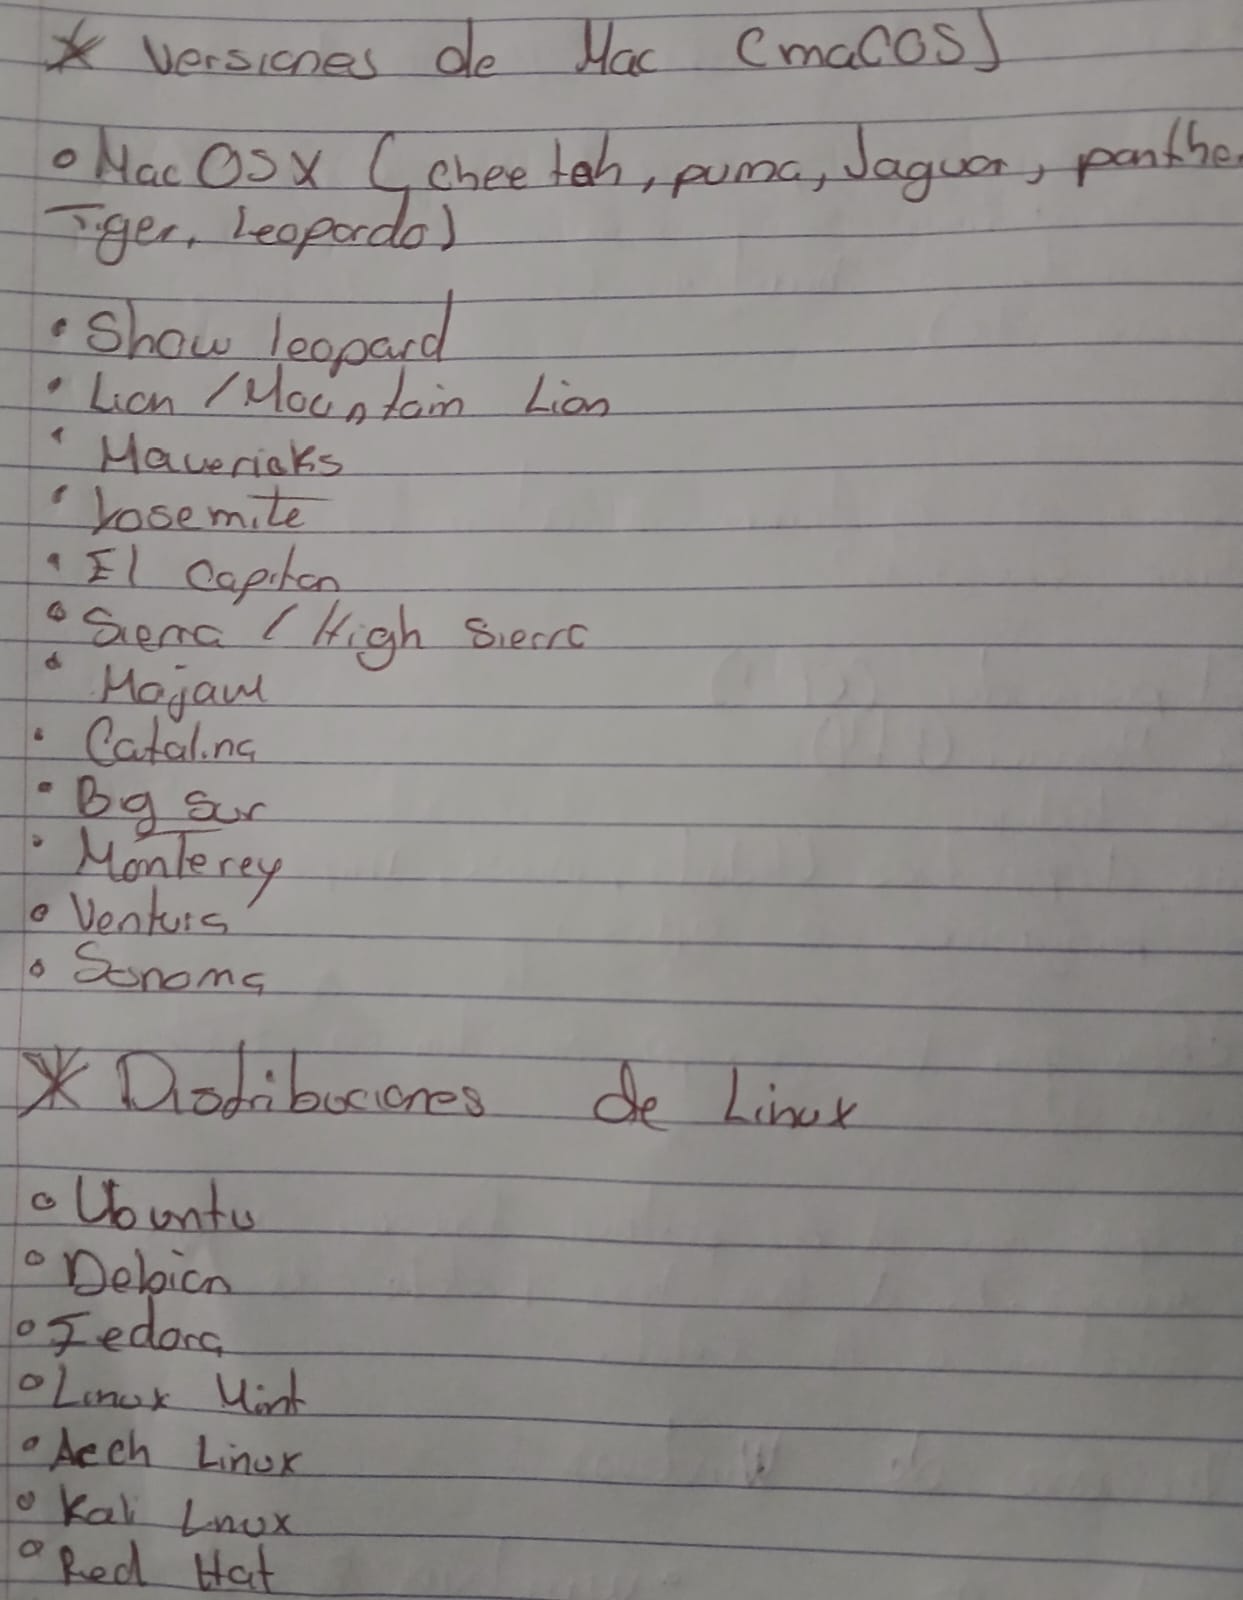 * Versiones de Mac (macOS)
° Mac OS X (cheetah, puma, Jaguar, panthe
Tiger, Leopardo)
• Show leopard
• Lion / Mountain Lion
• Mavericks
• Yosemite
• El Capitan
• Sierra / High Sierra
• Mojave
• Catalina
• Big Sur
• Monterey
• Ventura
• Sonoma
* Distribuciones de Linux
° Ubuntu
° Debian
° Fedora
° Linux Mint
° Aech Linux
° Kali Linux
° Red Hat